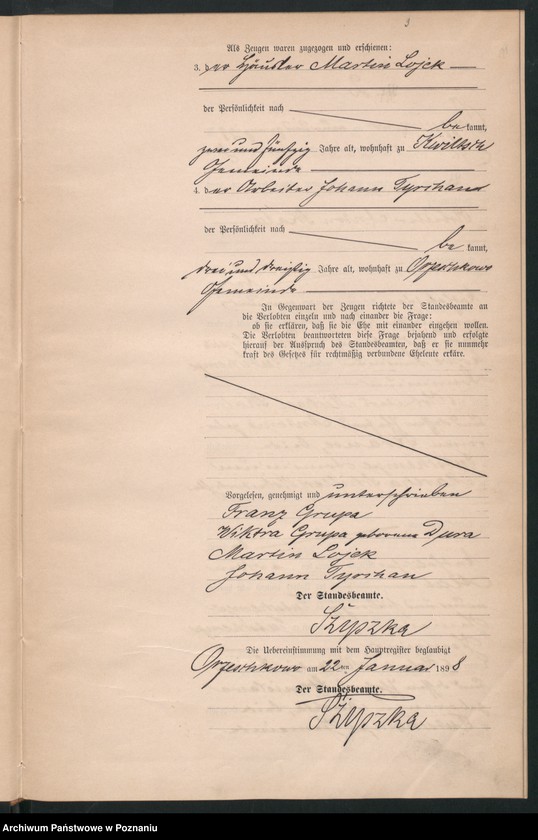 3
Als Zeugen waren zugezogen und erschienen:
3. der Häusler Martin Lojek
der Persönlichkeit nach
be kannt,
zwei und fünfzig Jahre alt, wohnhaft zu Kwiltsch
Gemeinde
4. der Arbeiter Johann Tyrchan
der Persönlichkeit nach
be kannt,
drei und dreißig Jahre alt, wohnhaft zu Orzeschkowo
Gemeinde
In Gegenwart der Zeugen richtete der Standesbeamte an
die Verlobten einzeln und nach einander die Frage:
ob sie erklären, daß sie die Ehe mit einander eingehen wollen.
Die Verlobten beantworteten diese Frage bejahend und erfolgte
hierauf der Ausspruch des Standesbeamten, daß er sie nunmehr
kraft des Gesetzes für rechtmäßig verbundene Eheleute erkläre.
Vorgelesen, genehmigt und unterschrieben
Franz Grupa
Wiktra Grupa geborene Dura
Martin Lojek
Johann Tyrchan
Der Standesbeamte.
Szypzka
Die Uebereinstimmung mit dem Hauptregister beglaubigt
Orzeschkowo am 22 ten Januar 1898
Der Standesbeamte.
Szypzka
Archiwum Państwowe w Poznaniu